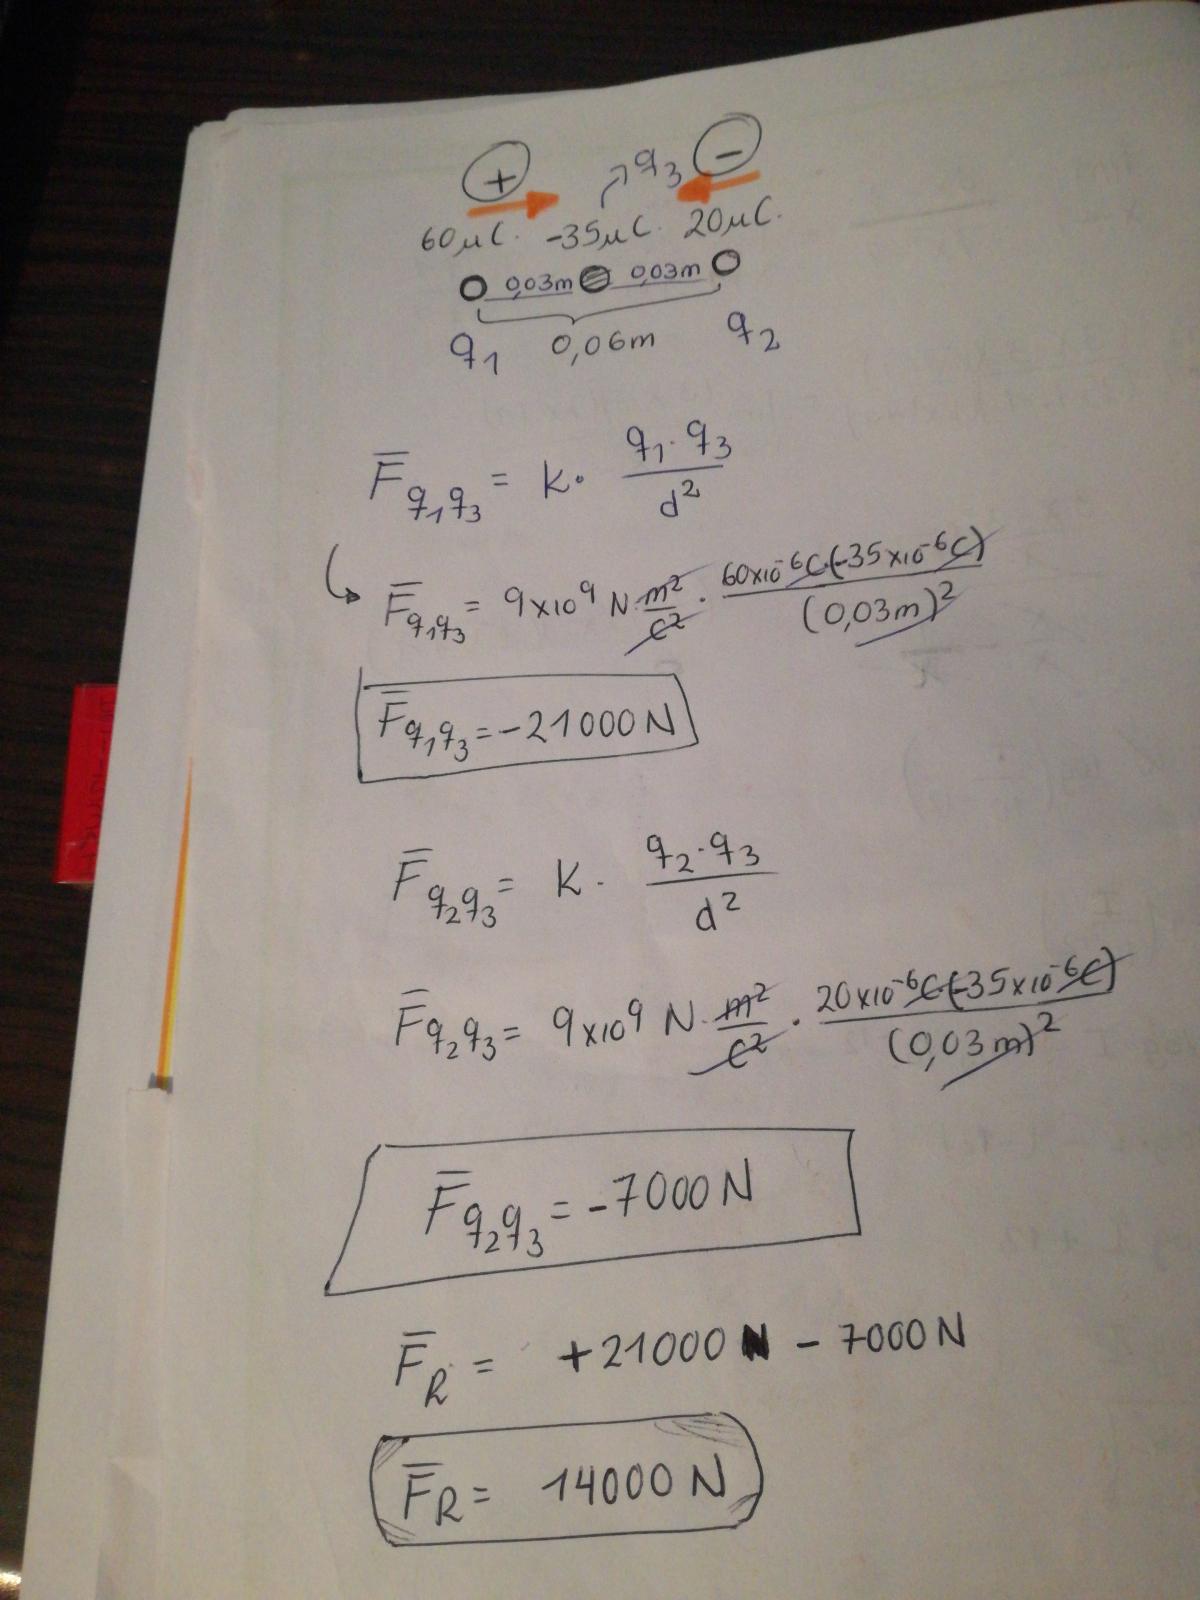 + q₃ -
60μC. -35μC. 20μC.
0,03m 0,03m
q₁ 0,06m q₂
F̅q₁q₃ = K · q₁ · q₃ / d²
F̅q₁q₃ = 9x10⁹ N · m²/c² · 60x10⁻⁶C·(-35x10⁻⁶C) / (0,03m)²
F̅q₁q₃ = -21000 N
F̅q₂q₃ = K · q₂ · q₃ / d²
F̅q₂q₃ = 9x10⁹ N · m²/c² · 20x10⁻⁶C·(-35x10⁻⁶C) / (0,03m)²
F̅q₂q₃ = -7000 N
F̅R = +21000 N - 7000 N
F̅R = 14000 N